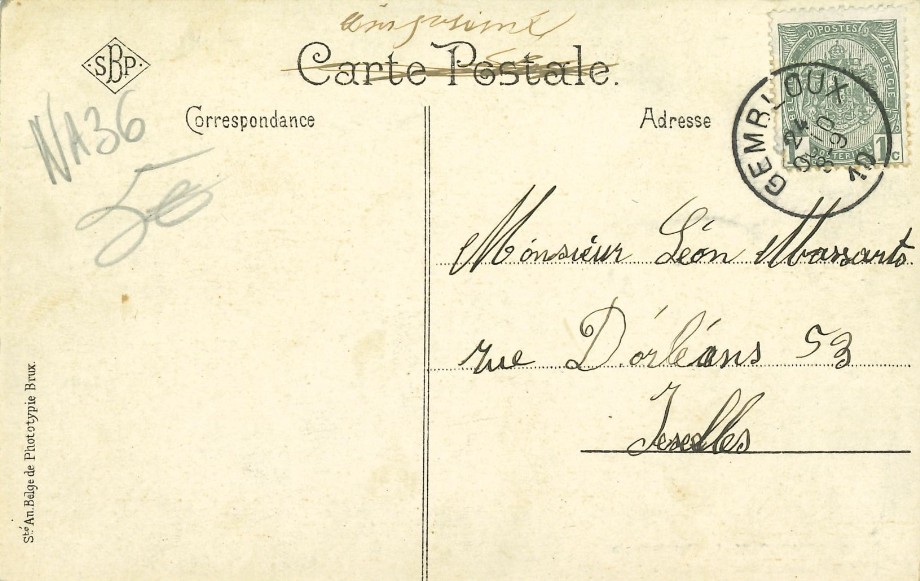 SBP
Carte Postale.
Correspondance
Adresse
NA36
50
POSTES BELGIE
1 C
GEMBLOUX
24
9-10
10
Monsieur Léon Massarts
rue D'órléans 53
Ixelles
Sté An. Belge de Phototypie Brux.